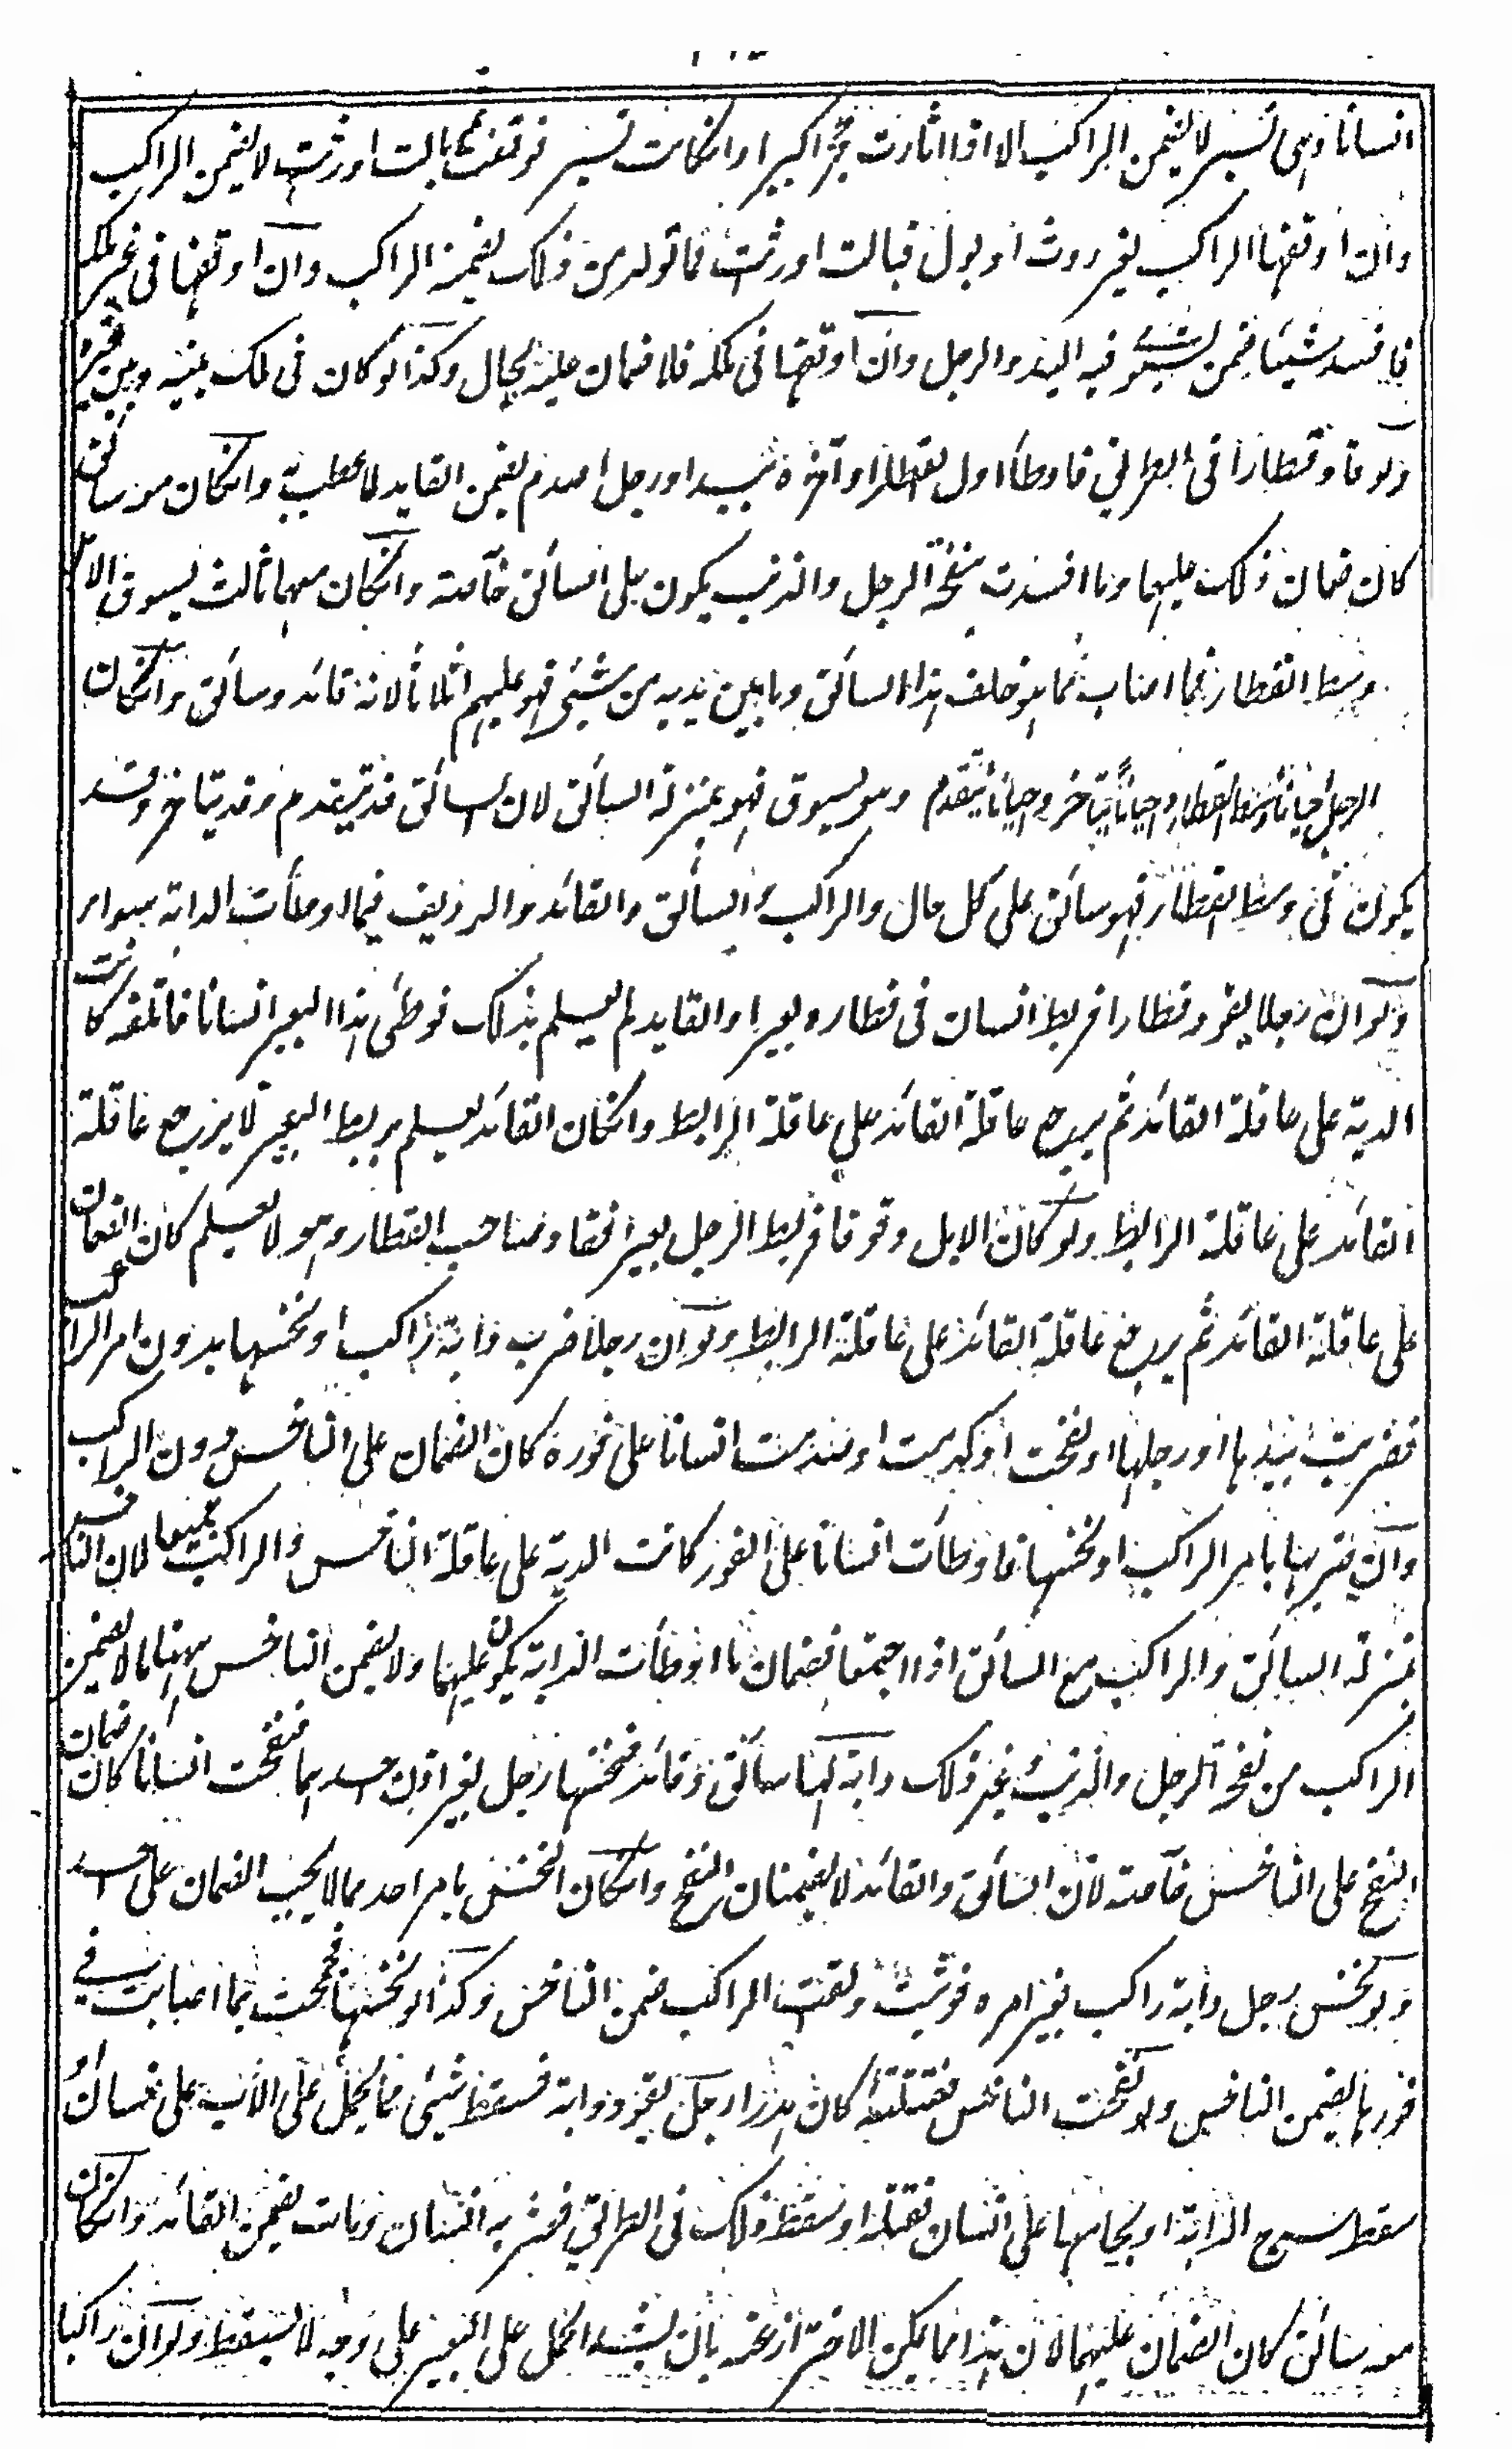 انسانا وهى تسير لا يضمن الراكب الا اذا اثارت حجرا كبيرا وانكانت تسير فوقفت ثم بالت اوراثت لا يضمن الراكب
وان اوقفها الراكب لغير روث او بول فبالت اوراثت فما تولد من ذلك يضمنه الراكب وان اوقفها فى غير ملكه
فافسد شيئا ضمن ليستوى فيه اليد والرجل وان اوقفها فى ملكه فلا ضمان عليه بحال وكذا لو كان فى ملك بينه وبين غيره
ولو قاد قطارا فى الطريق فاوطأ اول القطار او آخره بيد او رجل او صدم يضمن القايد لما عطب به وانكان معه سائق
كان ضمان ذلك عليهما وما افسدت بنفحة الرجل والذنب يكون على السائق خاصة وانكان معهما ثالث يسوق الابل
وسط القطار فما اصاب مما هو خلف هذا السائق وما بين يديه من شيئ فهو عليهم اثلاثا لانه قائد وسائق وانكان
الرجل احيانا وسط القطار واحيانا يتاخر واحيانا يتقدم وهو يسوق فهو بمنزلة السائق لان السائق قد يتقدم وقد يتاخر وقد
يكون فى وسط القطار فهو سائق على كل حال والراكب والسائق والقائد والرديف فيما اوطأت الدابة سواء
ولو ان رجلا يقود قطارا فربط انسان فى قطاره بعيرا والقايد لم يعلم بذلك فوطئ هذا البعير انسانا فاتلفه كانت
الدية على عاقلة القائد ثم يرجع عاقلة القائد على عاقلة الرابط وانكان القائد يعلم بربط البعير لا يرجع عاقلة
القائد على عاقلة الرابط ولو كان الابل وقوفا فربط الرجل بعيرا فقاد صاحب القطار وهو لا يعلم كان الضمان
على عاقلة القائد ثم يرجع عاقلة القائد على عاقلة الرابط ولو ان رجلا ضرب دابة راكب او نخسها بدون امر الراكب
فضربت بيدها او رجلها او نفحت او كدمت او صدمت انسانا على فوره كان الضمان على الناخس دون الراكب
وان ضربها بامر الراكب او نخسها فاوطأت انسانا على الفور كانت الدية على عاقلة الناخس والراكب جميعا لان الناخس
بمنزلة السائق والراكب مع السائق اذا اجتمعا فضمان ما اوطأت الدابة يكون عليهما ولا يضمن الناخس ههنا ما لا يضمن
الراكب من نفحة الرجل والذنب وغير ذلك دابة لها سائق وقائد فنخسها رجل بغير اذن احدهما فنفحت انسانا كان ضمان
النفح على الناخس خاصة لان السائق والقائد لا يضمنان النفح وانكان النخس بامر احدهما لا يجب الضمان على احد
ولو نخس رجل دابة راكب بغير امره فوثبت والقت الراكب ضمن الناخس وكذا لو نخسها فجمحت فما اصابت فى
فورها يضمن الناخس ولو نفحت الناخس فقتلته كان هدرا رجل يقود دابة فسقط شيئ مما يحمل على الابل على انسان او
سقط سرج الدابة او لجامها على انسان فقتله او سقط ذلك فى الطريق فعثر به انسان ومات يضمن القائد وانكان
معه سائق كان الضمان عليهما لان هذا مما يمكن الاحتراز عنه بان يشد الحمل على البعير على وجه لا يسقط ولو ان راكبا